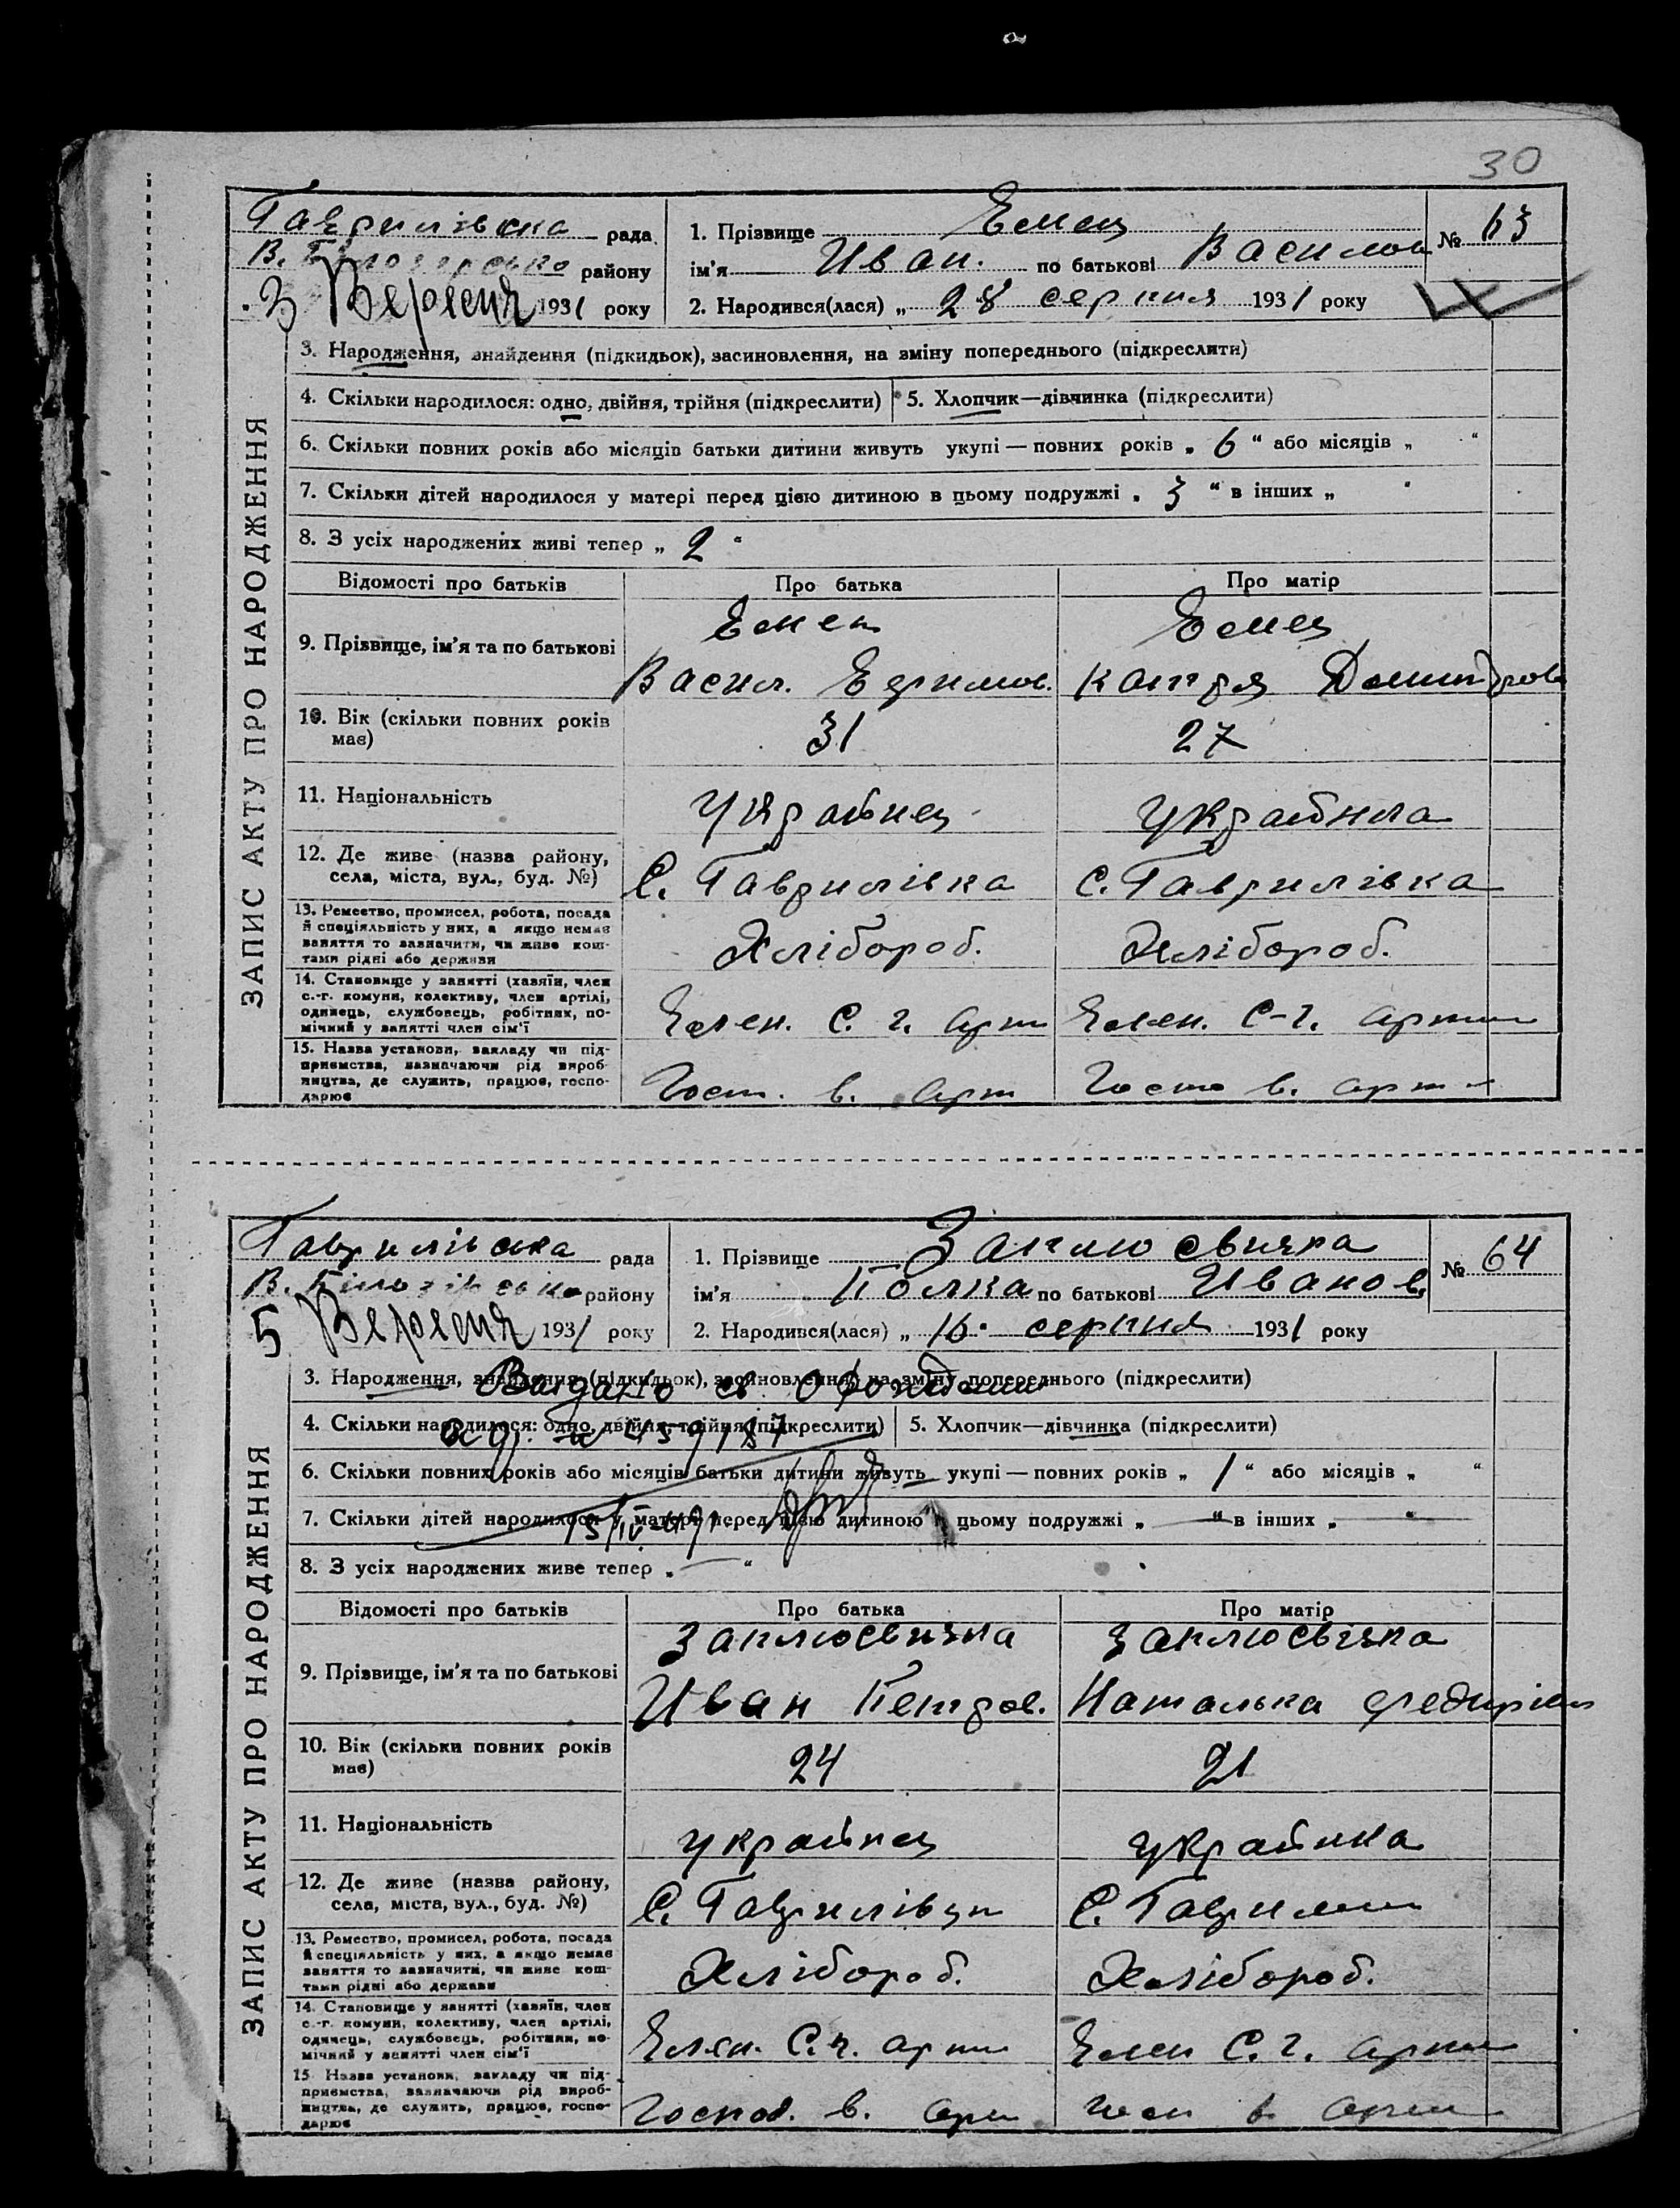 30
Гаврилівска рада
1. Прізвище Емец
№ 63
В. району
ім'я Иван. по батькові Васильов
3 Вересня 1931 року
2. Народився(лася) „ 28 серпня 1931 року
ЗАПИС АКТУ ПРО НАРОДЖЕННЯ
3. Народження, знайдення (підкидьок), засиновлення, на зміну попереднього (підкреслити)
4. Скільки народилося: одно, двійня, трійня (підкреслити)
5. Хлопчик—дівчинка (підкреслити)
6. Скільки повних років або місяців батьки дитини живуть укупі — повних років „ 6 “ або місяців „ “
7. Скільки дітей народилося у матері перед цією дитиною в цьому подружжі „ 3 “ в інших „ “
8. З усіх народжених живі тепер „ 2 “
Відомості про батьків
Про батька
Про матір
9. Прізвище, ім'я та по батькові
Емец
Васил.
Емец
Катря
10. Вік (скільки повних років
має)
31
27
11. Національність
Украйнец
Украйнка
12. Де живе (назва району,
села, міста, вул., буд. №)
С. Гаврилівка
С. Гаврилівка
13. Ремество, промисел, робота, посада
й спеціяльність у них, а якщо немає
заняття то зазначити, чи живе кош-
тами рідні або держави
Хлібороб.
Хлібороб.
14. Становище у занятті (хазяїн, член
с.-г. комуни, колективу, член артілі,
одинець, службовець, робітник, по-
мічний у занятті член сім'ї
Член. С. г. арт
Член. С-г. арт
15. Назва установи, закладу чи під-
приємства, зазначаючи рід вироб-
ництва, де служить, працює, госпо-
дарює
Госп. в. арт
Госп в. арт
Гаврилівска рада
1. Прізвище Заплюсвичка
№ 64
В. району
ім'я по батькові Иванов.
5 Вересня 1931 року
2. Народився(лася) „ 16. серпня 1931 року
ЗАПИС АКТУ ПРО НАРОДЖЕННЯ
3. Народження, знайдення (підкидьок), засиновлення, на зміну попереднього (підкреслити)
4. Скільки народилося: одно, двійня, трійня (підкреслити)
5. Хлопчик—дівчинка (підкреслити)
6. Скільки повних років або місяців батьки дитини живуть укупі — повних років „ 1 “ або місяців „ “
7. Скільки дітей народилося у матері перед цією дитиною в цьому подружжі „ — “ в інших „ — “
8. З усіх народжених живе тепер „ — “
Відомості про батьків
Про батька
Про матір
9. Прізвище, ім'я та по батькові
Заплюсвичка
Иван Петров.
Заплюсвічка
Наталька
10. Вік (скільки повних років
має)
24
21
11. Національність
украйнец
украйнка
12. Де живе (назва району,
села, міста, вул., буд. №)
С.
С.
13. Ремество, промисел, робота, посада
й спеціяльність у них, а якщо немає
заняття то зазначити, чи живе кош-
тами рідні або держави
Хлібороб.
Хлібороб.
14. Становище у занятті (хазяїн, член
с.-г. комуни, колективу, член артілі,
одинець, службовець, робітник, по-
мічний у занятті член сім'ї
Член. С. г. арт
Член С. г. арт
15. Назва установи, закладу чи під-
приємства, зазначаючи рід вироб-
ництва, де служить, працює, госпо-
дарює
Господ. в. арт
в арт